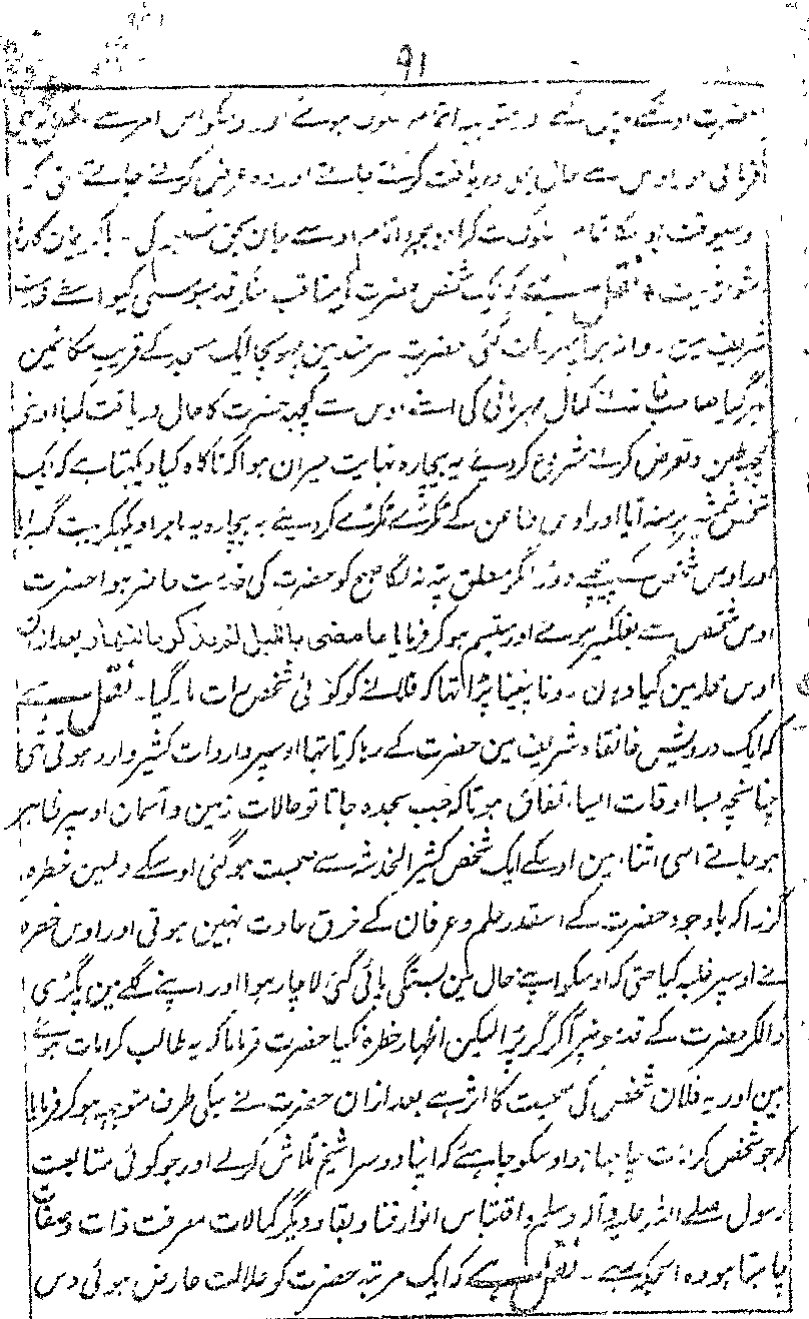 ٩١
حضرت اوسکے پس گئے اور متوجہ اتمام سلوک ہوئے اور اوسکو اس امر سے
فرمائی اور اوس سے حال بھی دریافت کرتے جاتے اور وہ عرض کرتے جاتے حتی کہ
اوسیوقت اوسکا تمام سلوک
نقل ہے کہ ایک شخص حضرت کے مناقب سنکر قدمبوسی کیواسطے
شریف میں روانہ ہوا جس رات کہ حضرت سرہند مین پہونچا ایک مسجد کے قریب مکانمین
ٹہر گیا صاحب خانہ نے کمال مہربانی کی اسنے اوس سے کچہہ حضرت کا حال دریافت کیا اوسنے
کچہہ طعن و تعرض کرنے شروع کردیے یہ بیچارہ نہایت حیران ہوا کہ ناگاہ کیا دیکہتا ہے کہ ایک
شخص شمشیر برہنہ آیا اور اوس طاعن کے ٹکڑے ٹکڑے کردیئے یہ بیچارہ یہ ماجرا دیکہکر بہت گہبرایا
اور اوس شخص کے پیچہے دوڑا مگر مطلق پتہ نہ لگا صبح کو حضرت کی خدمت حاضر ہوا حضرت
اوس شخص سے بغلگیر ہوئے اور متبسم ہوکر فرمایا ما مضی باللیل لا یذکر بالنہار بعد ازان
اوس محلہ مین گیا وہان رونا پیٹنا پڑا تہا کہ فلانے کو کوئی شخص رات مار گیا ۔ نقل ہے
کہ ایک درویش خانقاہ شریف مین حضرت کے رہا کرتا تہا اوسپر واردات کثیر وارد ہوتی تہی
چنانچہ بسا اوقات ایسا اتفاق ہوتا کہ جب سجدہ جاتا تو حالات زمین و آسمان اوسپر ظاہر
ہوجاتے اسی اثناء مین اوسکے ایک شخص کثیر الخدشہ سے صحبت ہوگئی اوسکے دلمین خطرہ
گزرا کہ باوجود حضرت کے اسقدر علم و عرفان کے خرق عادت نہین ہوتی اور اوس خطرہ
نے اوسپر غلبہ کیا حتی کہ اوسکو اپنے حال مین بستگی پائی گئی لاچار ہوا اور اپنے گلے مین پگڑی
ڈالکر حضرت کے قدمونپر آکر گر پڑا لیکن اظہار خطرہ نکیا حضرت فرمایا کہ یہ طالب کرامات ہوئے
ہین اور یہ فلان شخص کی صحبت کا اثر ہے بعد ازان حضرت نے اسکی طرف متوجہ ہوکر فرمایا
کہ جو شخص کرامت چاہتا ہو اوسکو چاہئے کہ اپنا دوسرا شیخ تلاش کرلے اور جو کوئی متابعت
رسول صلے اللہ علیہ وآلہ وسلم و اقتباس انوار فنا و بقا و دیگر کمالات معرفت ذات و صفات
چاہتا ہو وہ اسجگہ رہے ۔ نقل ہے کہ ایک مرتبہ حضرت کو علالت عارض ہوئی دس